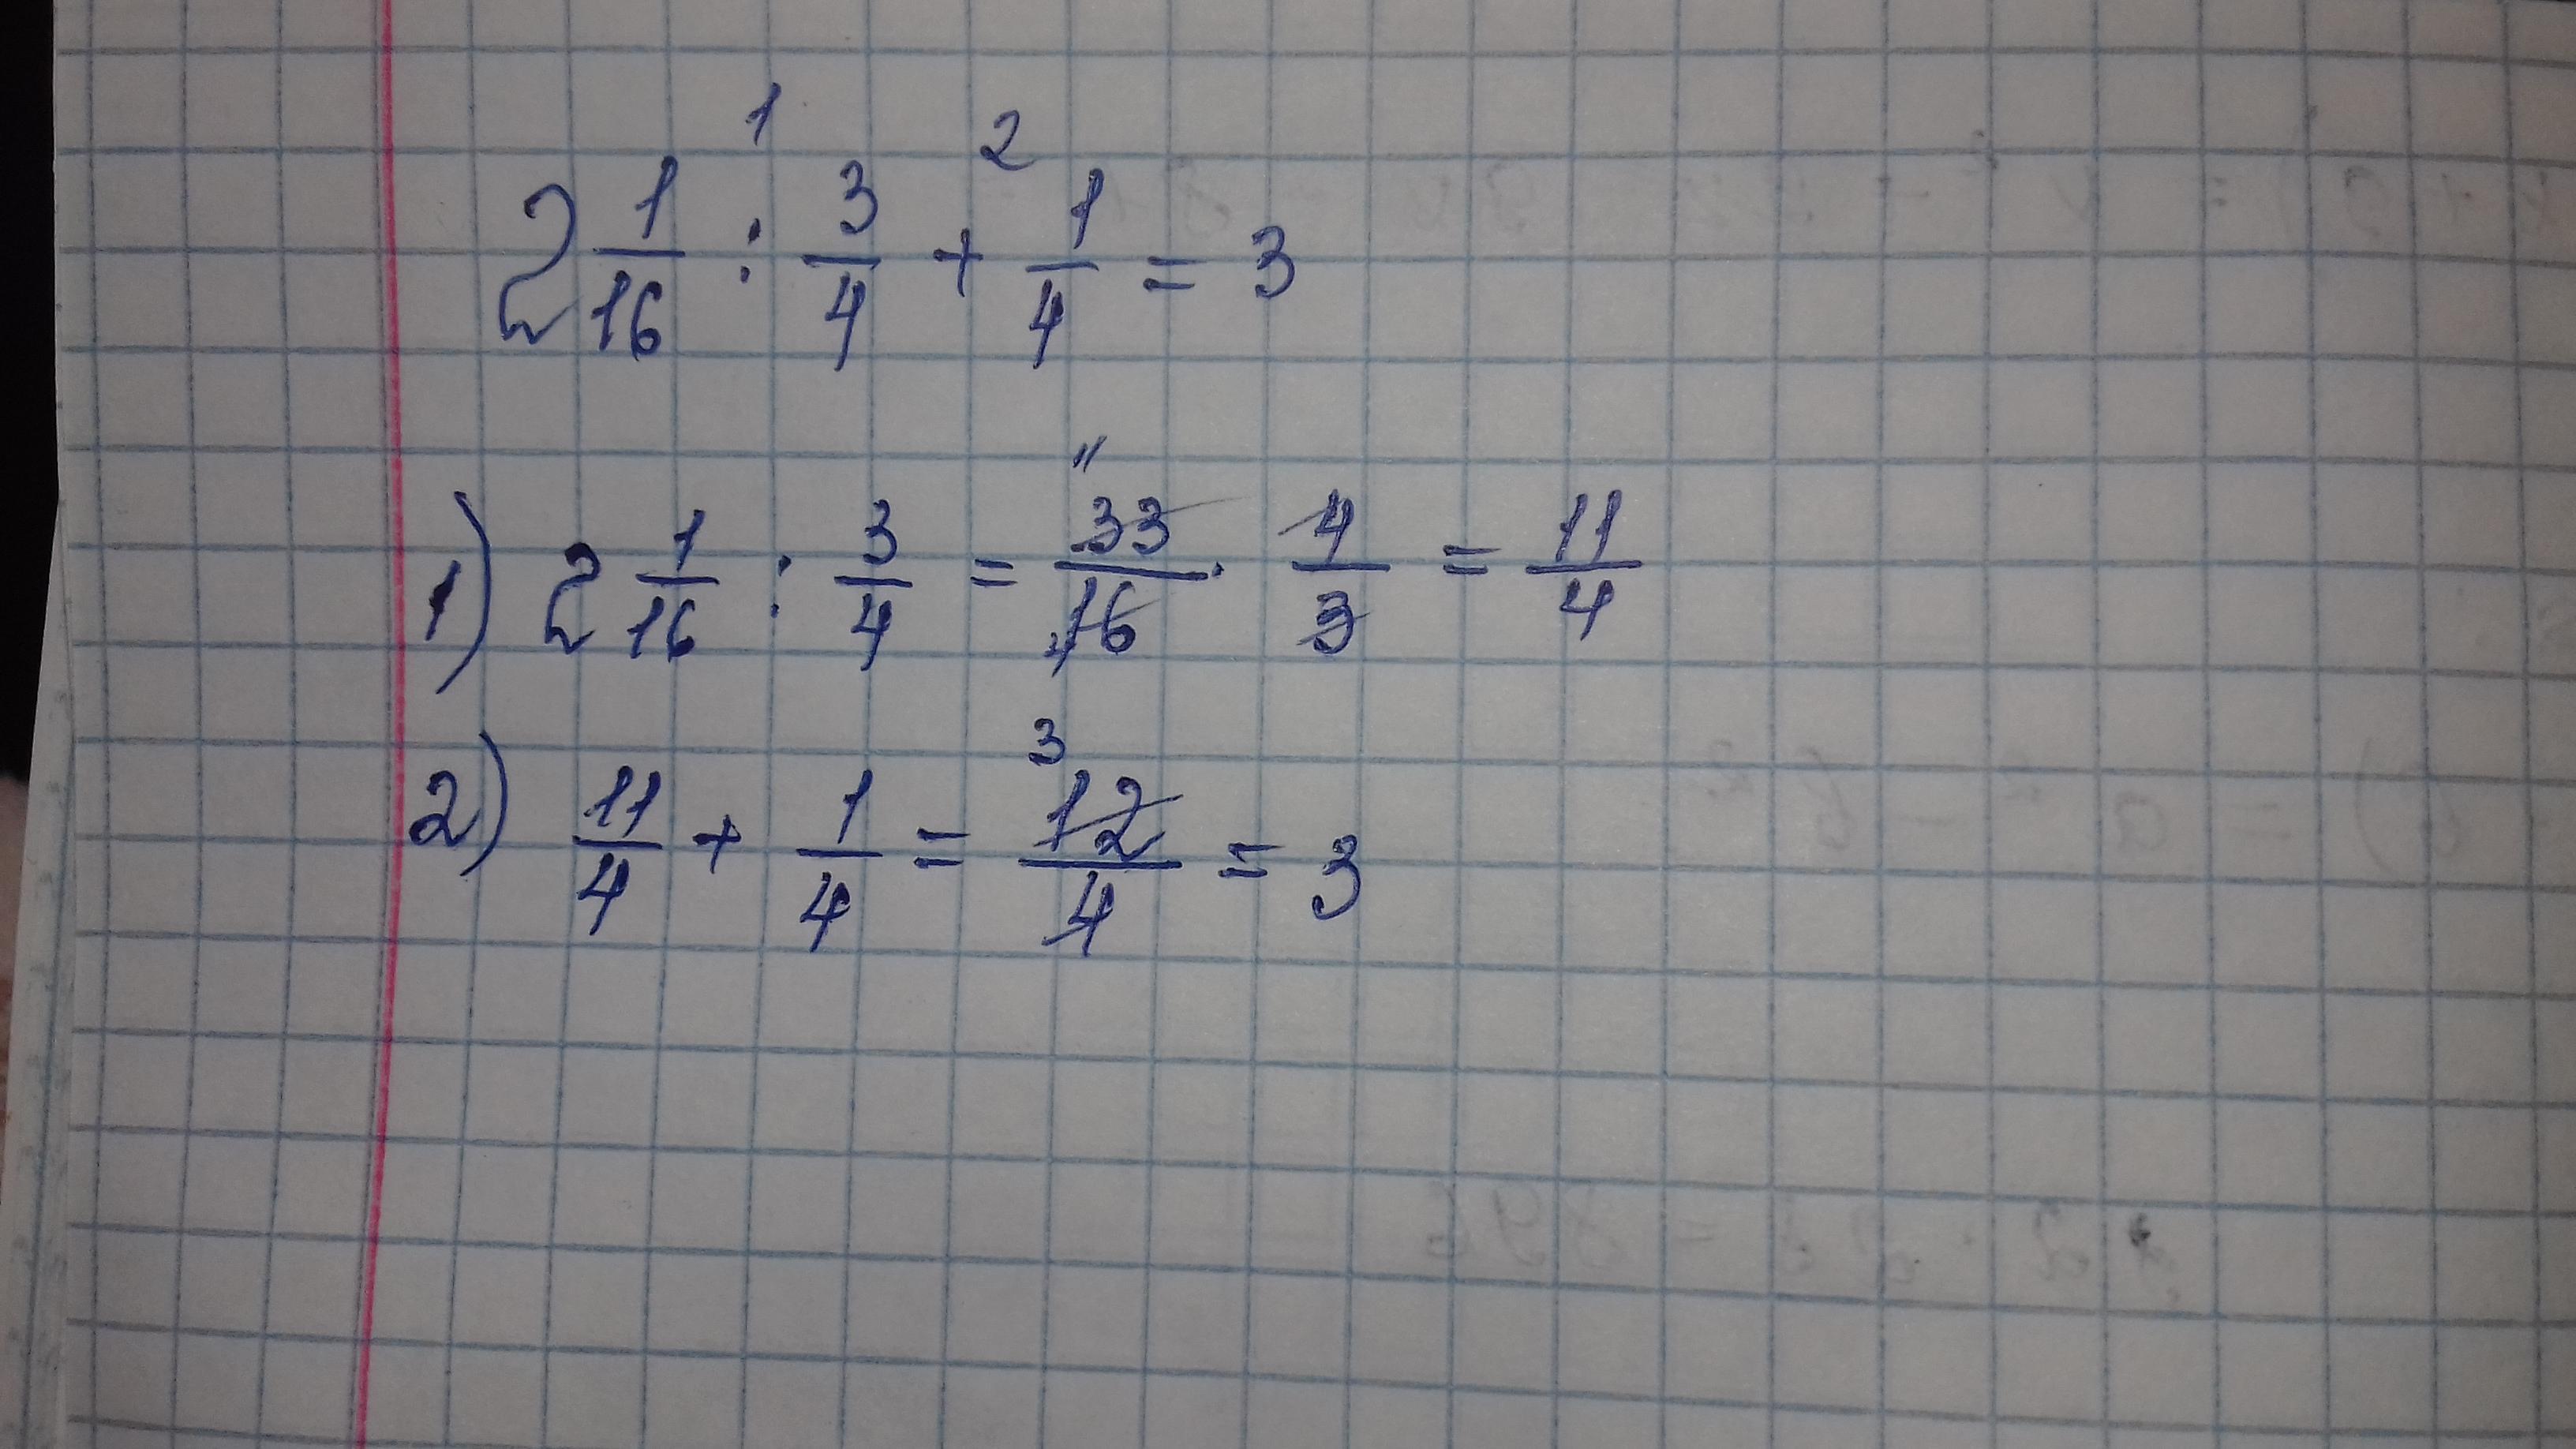 1 2
2 1/16 : 3/4 + 1/4 = 3
1) 2 1/16 : 3/4 = 33/16 · 4/3 = 11/4
2) 11/4 + 1/4 = 12/4 = 3